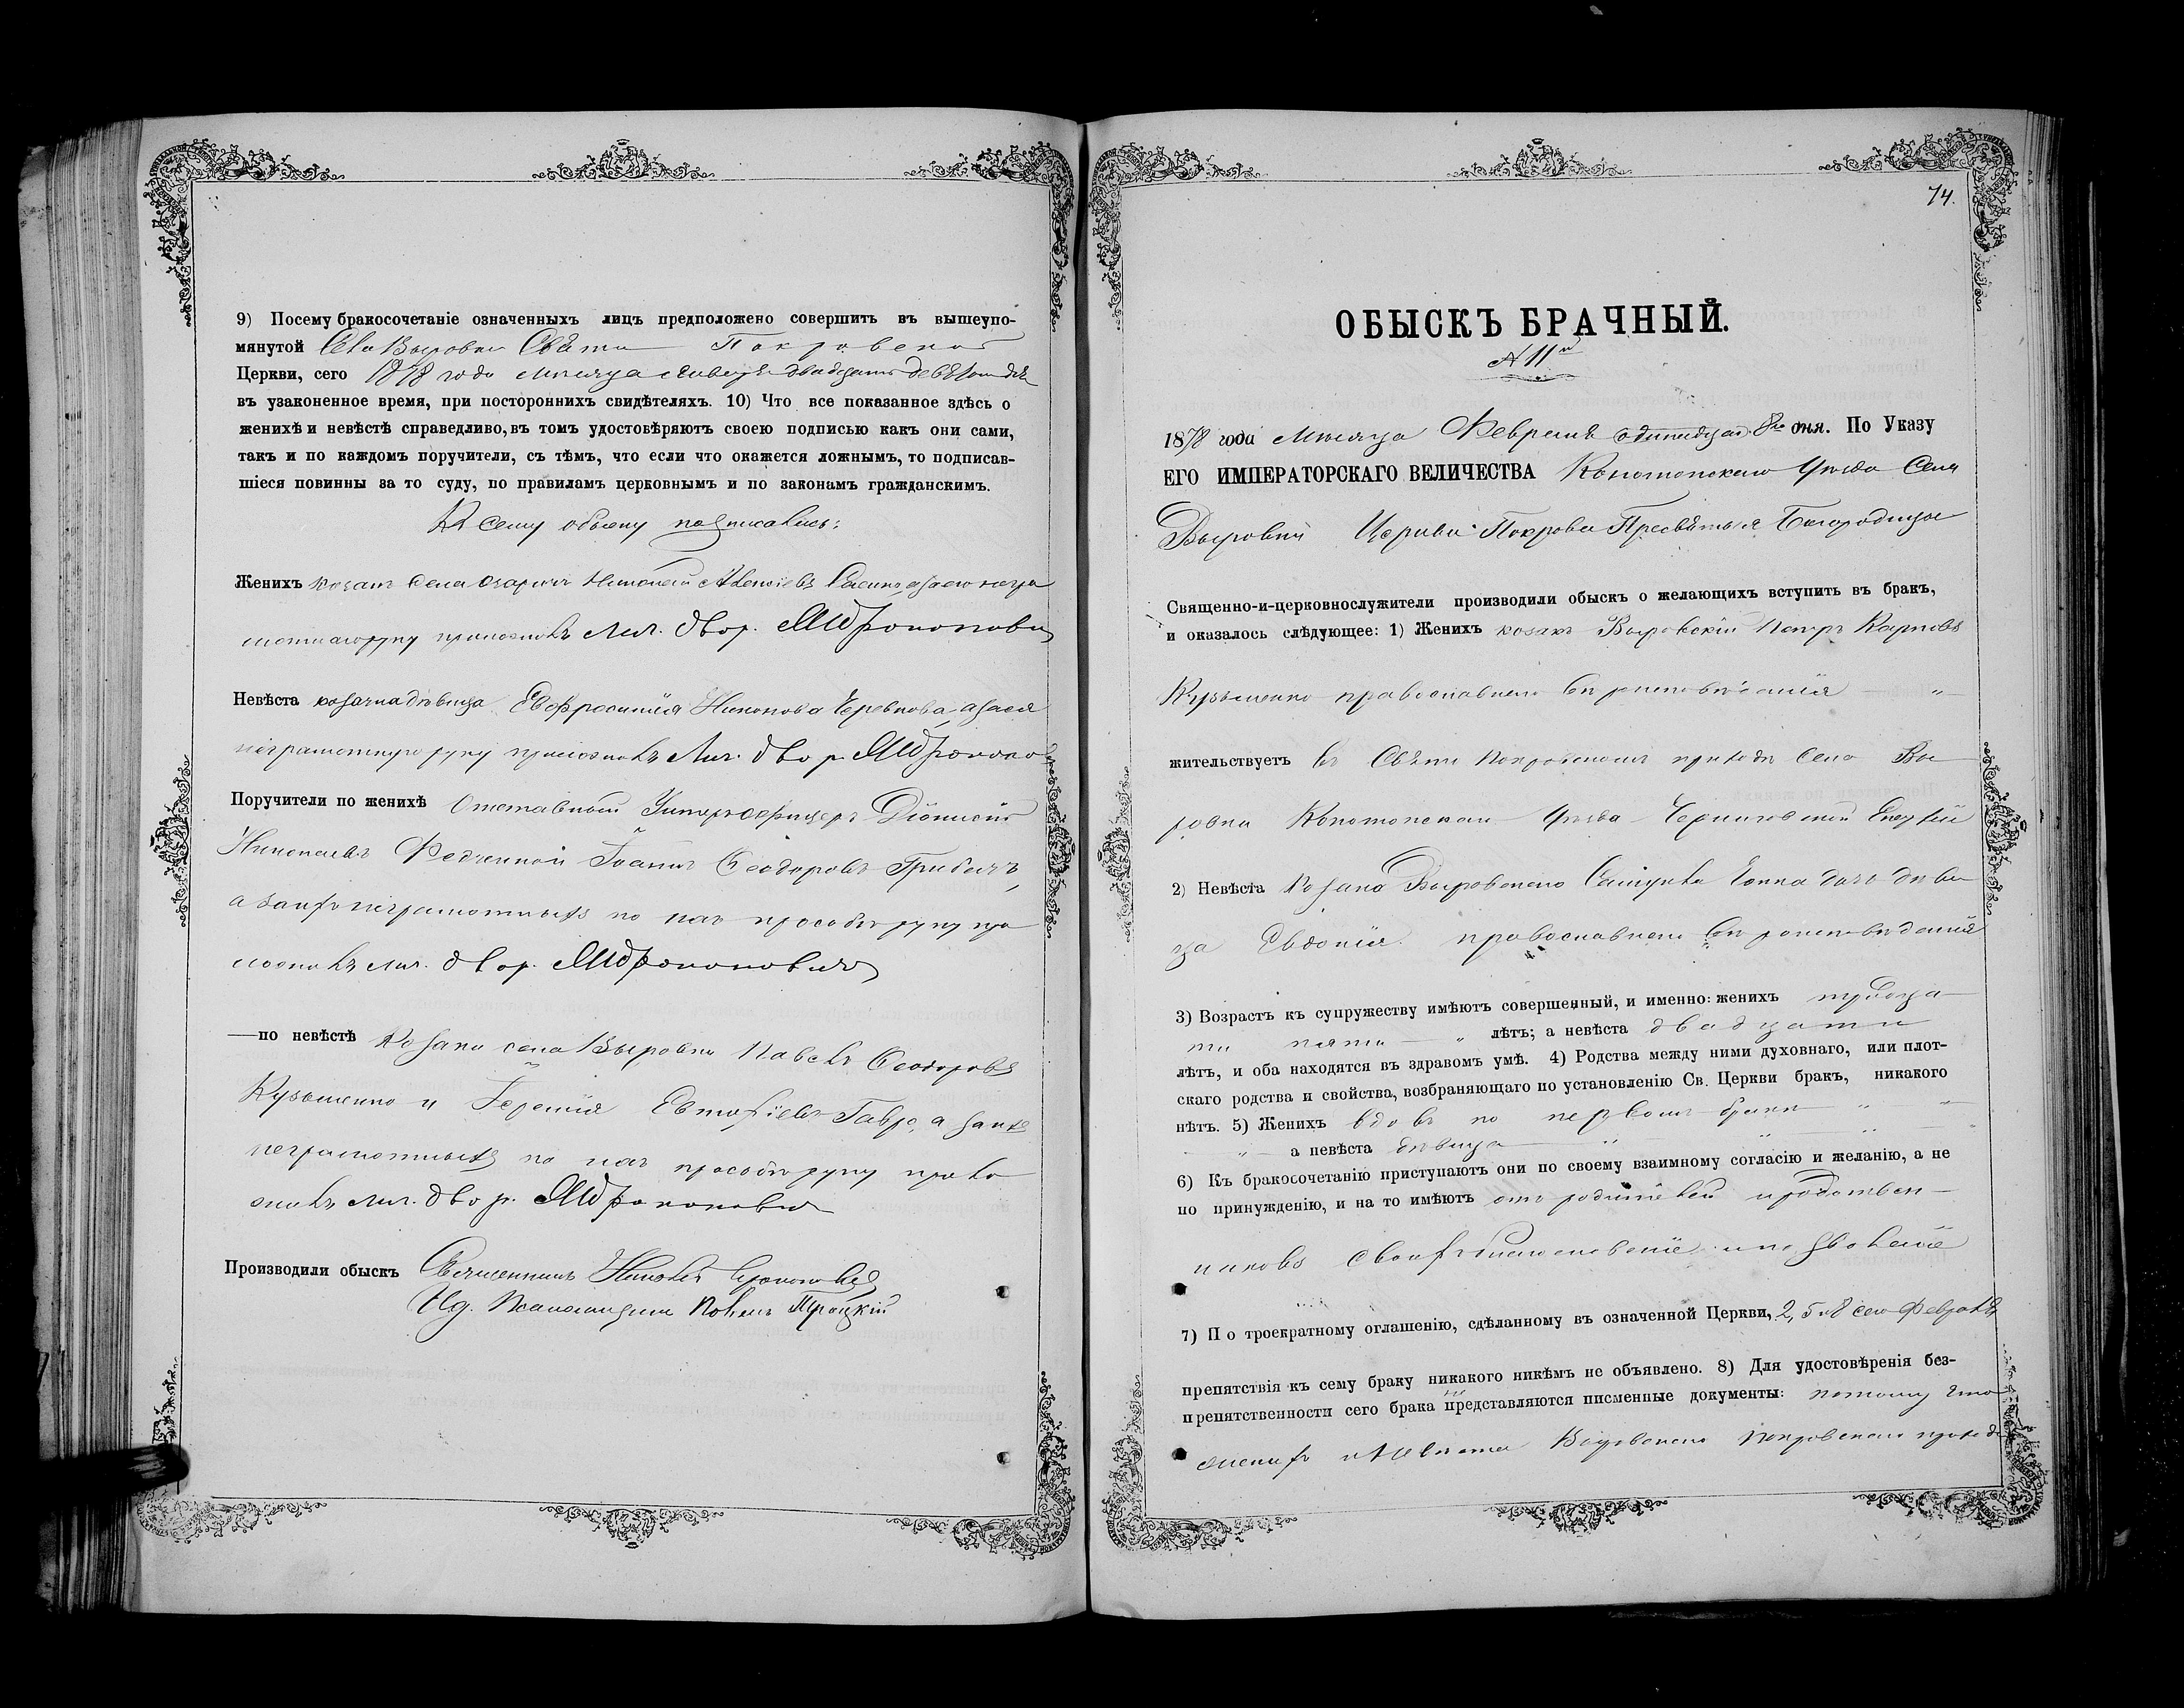 9) Посему бракосочетаніе означенныхъ лицъ предположено совершить въ вышеупо-
мянутой Села Выровки Свято Покровской
Церкви, сего 1878 года месяца января двадцать девятого дня
въ узаконенное время, при постороннихъ свидѣтеляхъ. 10) Что все показанное здѣсь о
женихѣ и невѣстѣ справедливо, въ томъ удостовѣряютъ своею подписью какъ они сами,
такъ и по каждомъ поручители, съ тѣмъ, что если что окажется ложнымъ, то подписав-
шіеся повинны за то суду, по правиламъ церковнымъ и по законамъ гражданскимъ.
К сему обыску подписались:
Женихъ козакъ села Озаричъ Николай Алексіевъ
руку приложилъ Лич. двор.
Невѣста козачка дѣвица Евфросинія Никонова Черевкова, а за ея
неграмотную руку приложилъ Лич. двор.
Поручители по женихѣ Отставный Унтеръ офицеръ Діонисій
Николаевъ Федченко и Іоаннъ Ѳеодоровъ
а за ихъ неграмотныхъ по ихъ просьбѣ руку при
ложилъ лич. двор.
—по невѣстѣ Козаки села Выровки Павелъ Ѳеодоровъ
Кузьменко и Іеремія Евтихіевъ а за ихъ
неграмотныхъ по ихъ просьбѣ руку прило
жилъ лич. двор.
Производили обыскъ Священникъ Николай
И. д. Псаломщика Павелъ Троцкій
74.
ОБЫСКЪ БРАЧНЫЙ.
№ 11й
1878 года месяца Февраля одинадцат 8го дня. По Указу
ЕГО ИМПЕРАТОРСКАГО ВЕЛИЧЕСТВА Конотопского Уезда Села
Выровки Церкви Покрова Пресвятыя Богородицы
Священно-и-церковнослужители производили обыскъ о желающихъ вступить въ бракъ,
и оказалось слѣдующее: 1) Женихъ козакъ Выровскій Петръ Карповъ
Кузьменко православнаго вѣроисповѣданія — „ —
жительствуетъ въ Свято Покровскомъ приходѣ села Вы-
ровки Конотопскаго Уѣзда Черниговской Епархіи
2) Невѣста Козака Выровского дочь дѣви
ца Евдокія православнаго вѣроисповѣданія
3) Возрастъ къ супружеству имѣютъ совершенный, и именно: женихъ тридца-
ти пяти — „ лѣтъ; а невѣста двадцати
лѣтъ, и оба находятся въ здравомъ умѣ. 4) Родства между ними духовнаго, или плот-
скаго родства и свойства, возбраняющаго по установленію Св. Церкви бракъ, никакого
нѣтъ. 5) Женихъ вдовъ по первомъ бракѣ „ „
„ — а невѣста дѣвица „ „ „
6) Къ бракосочетанію приступаютъ они по своему взаимному согласію и желанію, а не
по принужденію, и на то имѣютъ отъ родителей и родствен-
никовъ своихъ благословеніе и позволеніе
7) По троекратному оглашенію, сдѣланному въ означенной Церкви, 2, 5 и 8 сего Февраля
препятствія къ сему браку никакого никѣмъ не объявлено. 8) Для удостовѣренія без-
препятственности сего брака не представляются писменные документы: потому что
женихъ и невѣста Выровского Покровского прихода